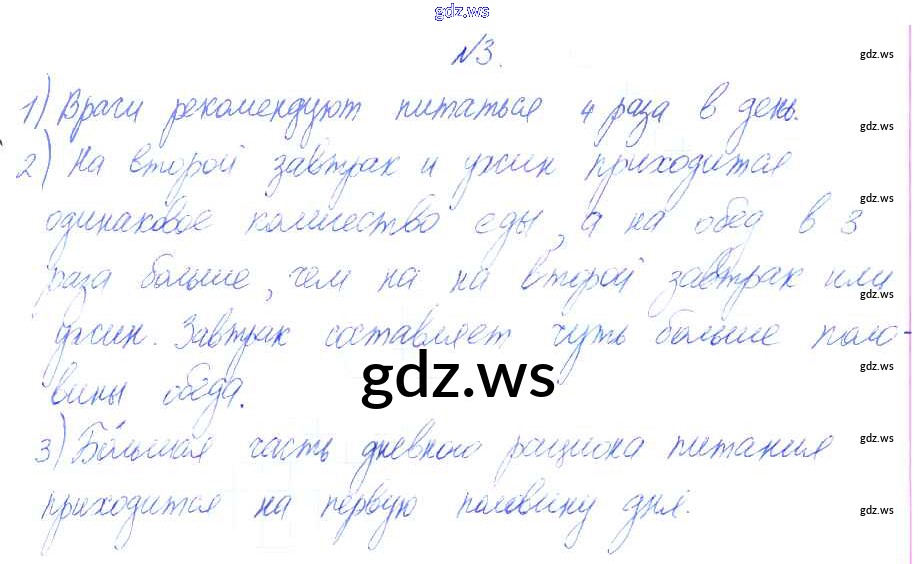 gdz.ws
№3.
gdz.ws
1) Врачи рекомендуют питаться 4 раза в день.
gdz.ws
2) На второй завтрак и ужин приходится
gdz.ws
одинаковое количество еды, а на обед в 3
раза больше, чем на на второй завтрак или
gdz.ws
ужин. Завтрак составляет чуть больше поло-
gdz.ws
gdz.ws
вины обеда.
3) Бо́льшая часть дневного рациона питания
gdz.ws
приходится на первую половину дня.
gdz.ws